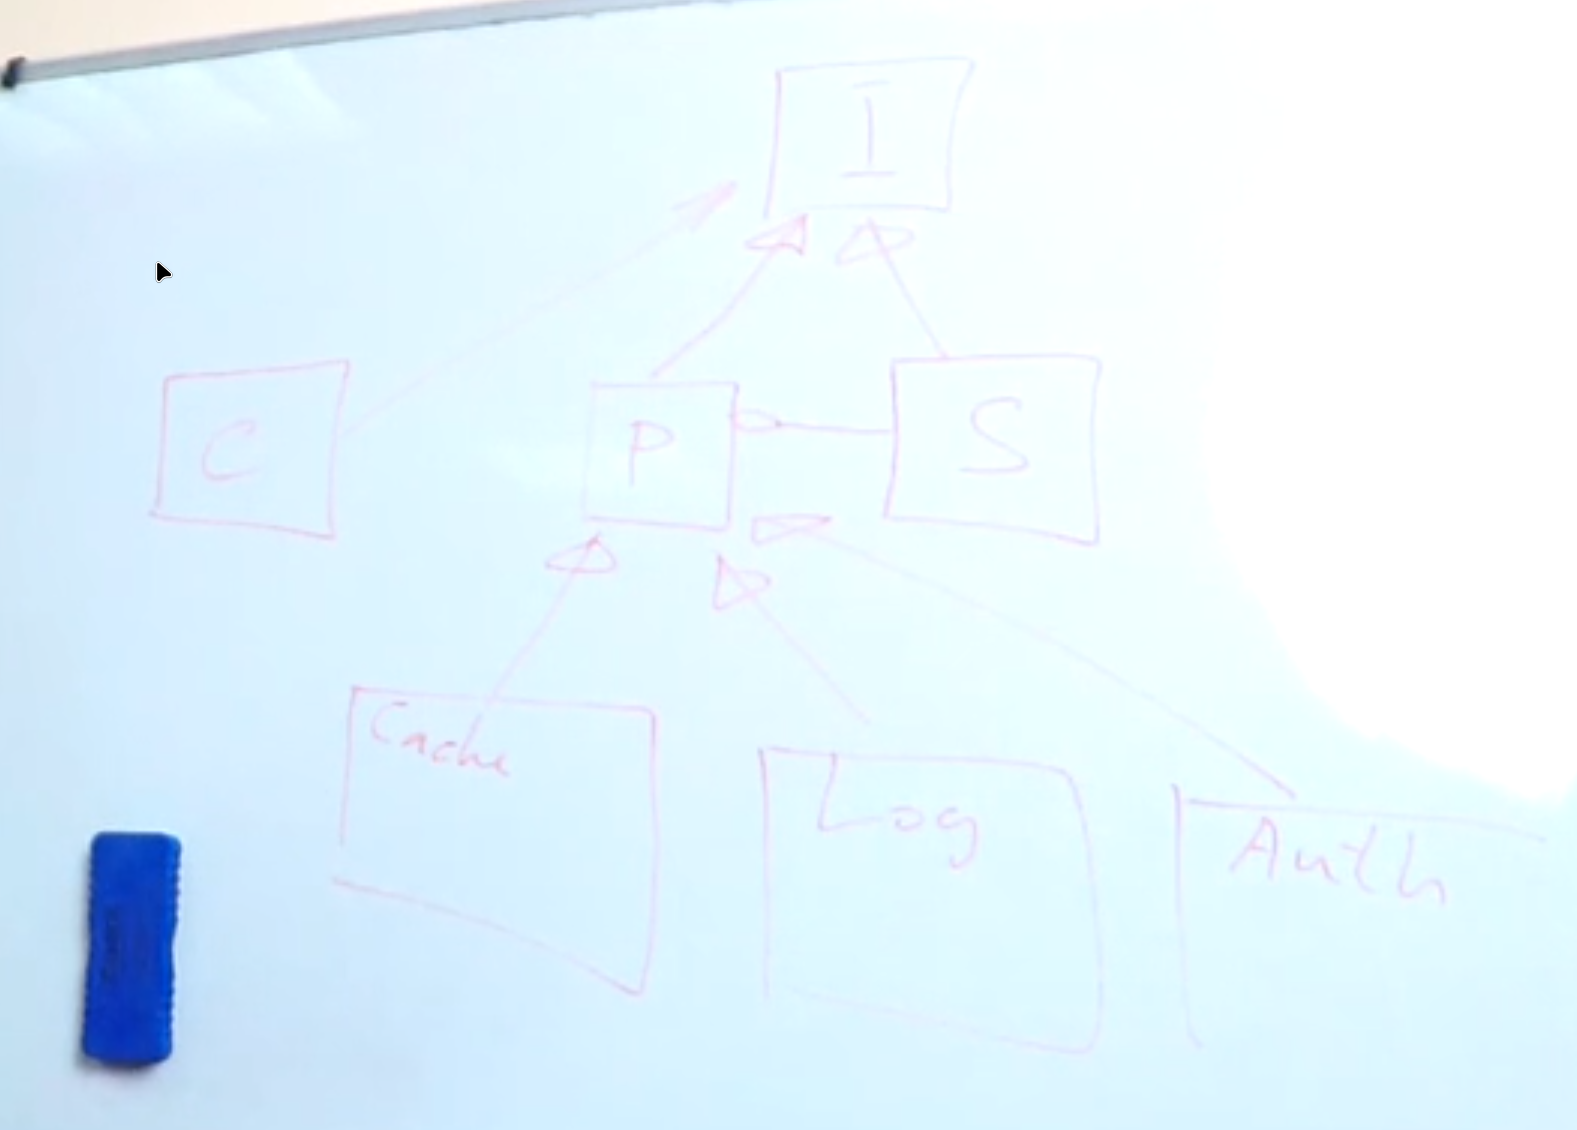 I
C
P
S
Cache
Log
Auth